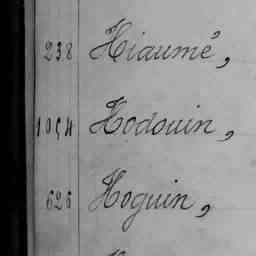 238 Hiaumé,
1054 Hodouin,
626 Hoguin,